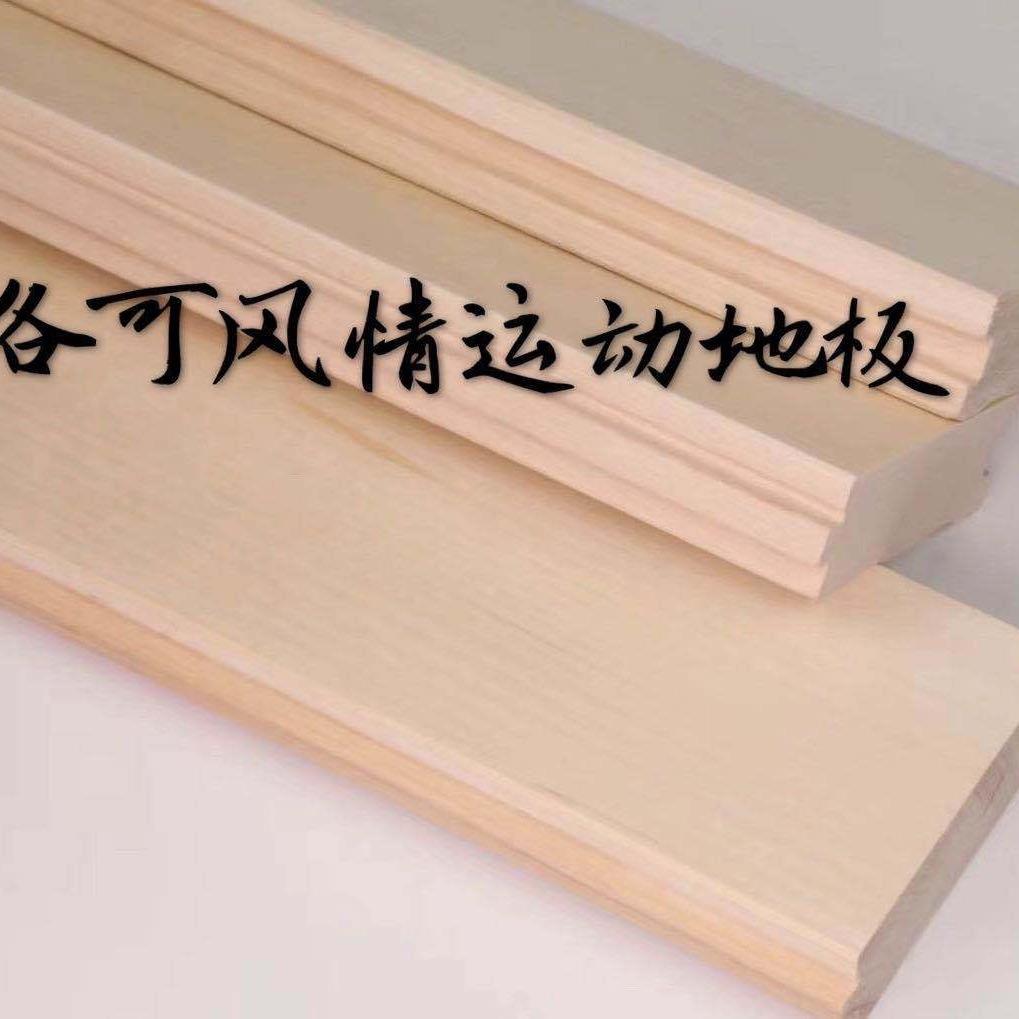 洛可风情运动地板